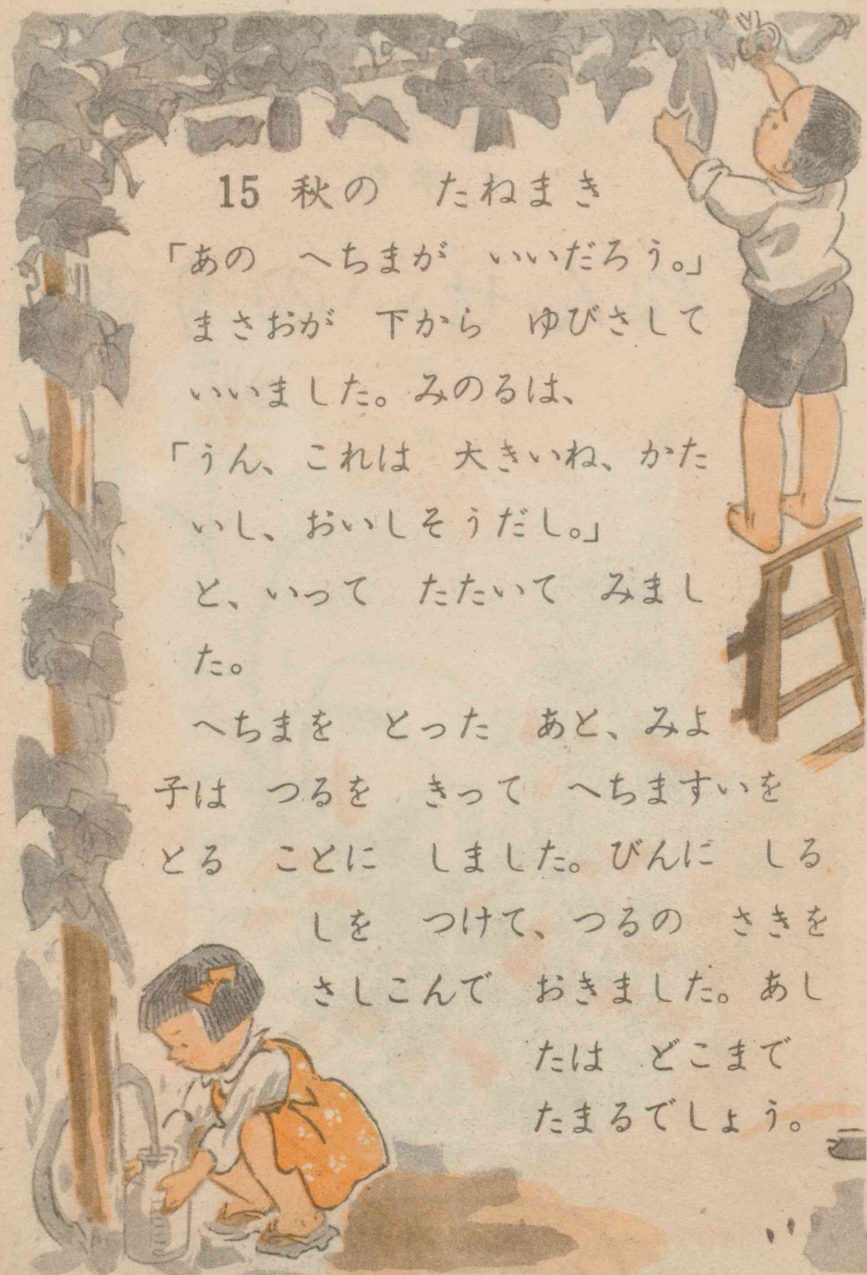 15 秋の　たねまき
「あの　へちまが　いいだろう。」
まさおが　下から　ゆびさして
いいました。みのるは、
「うん、これは　大きいね、かた
いし、おいしそうだし。」
と、いって　たたいて　みまし
た。
へちまを　とった　あと、みよ
子は　つるを　きって　へちますいを
とる　ことに　しました。びんに　しる
しを　つけて、つるの　さきを
さしこんで　おきました。あし
たは　どこまで
たまるでしょう。